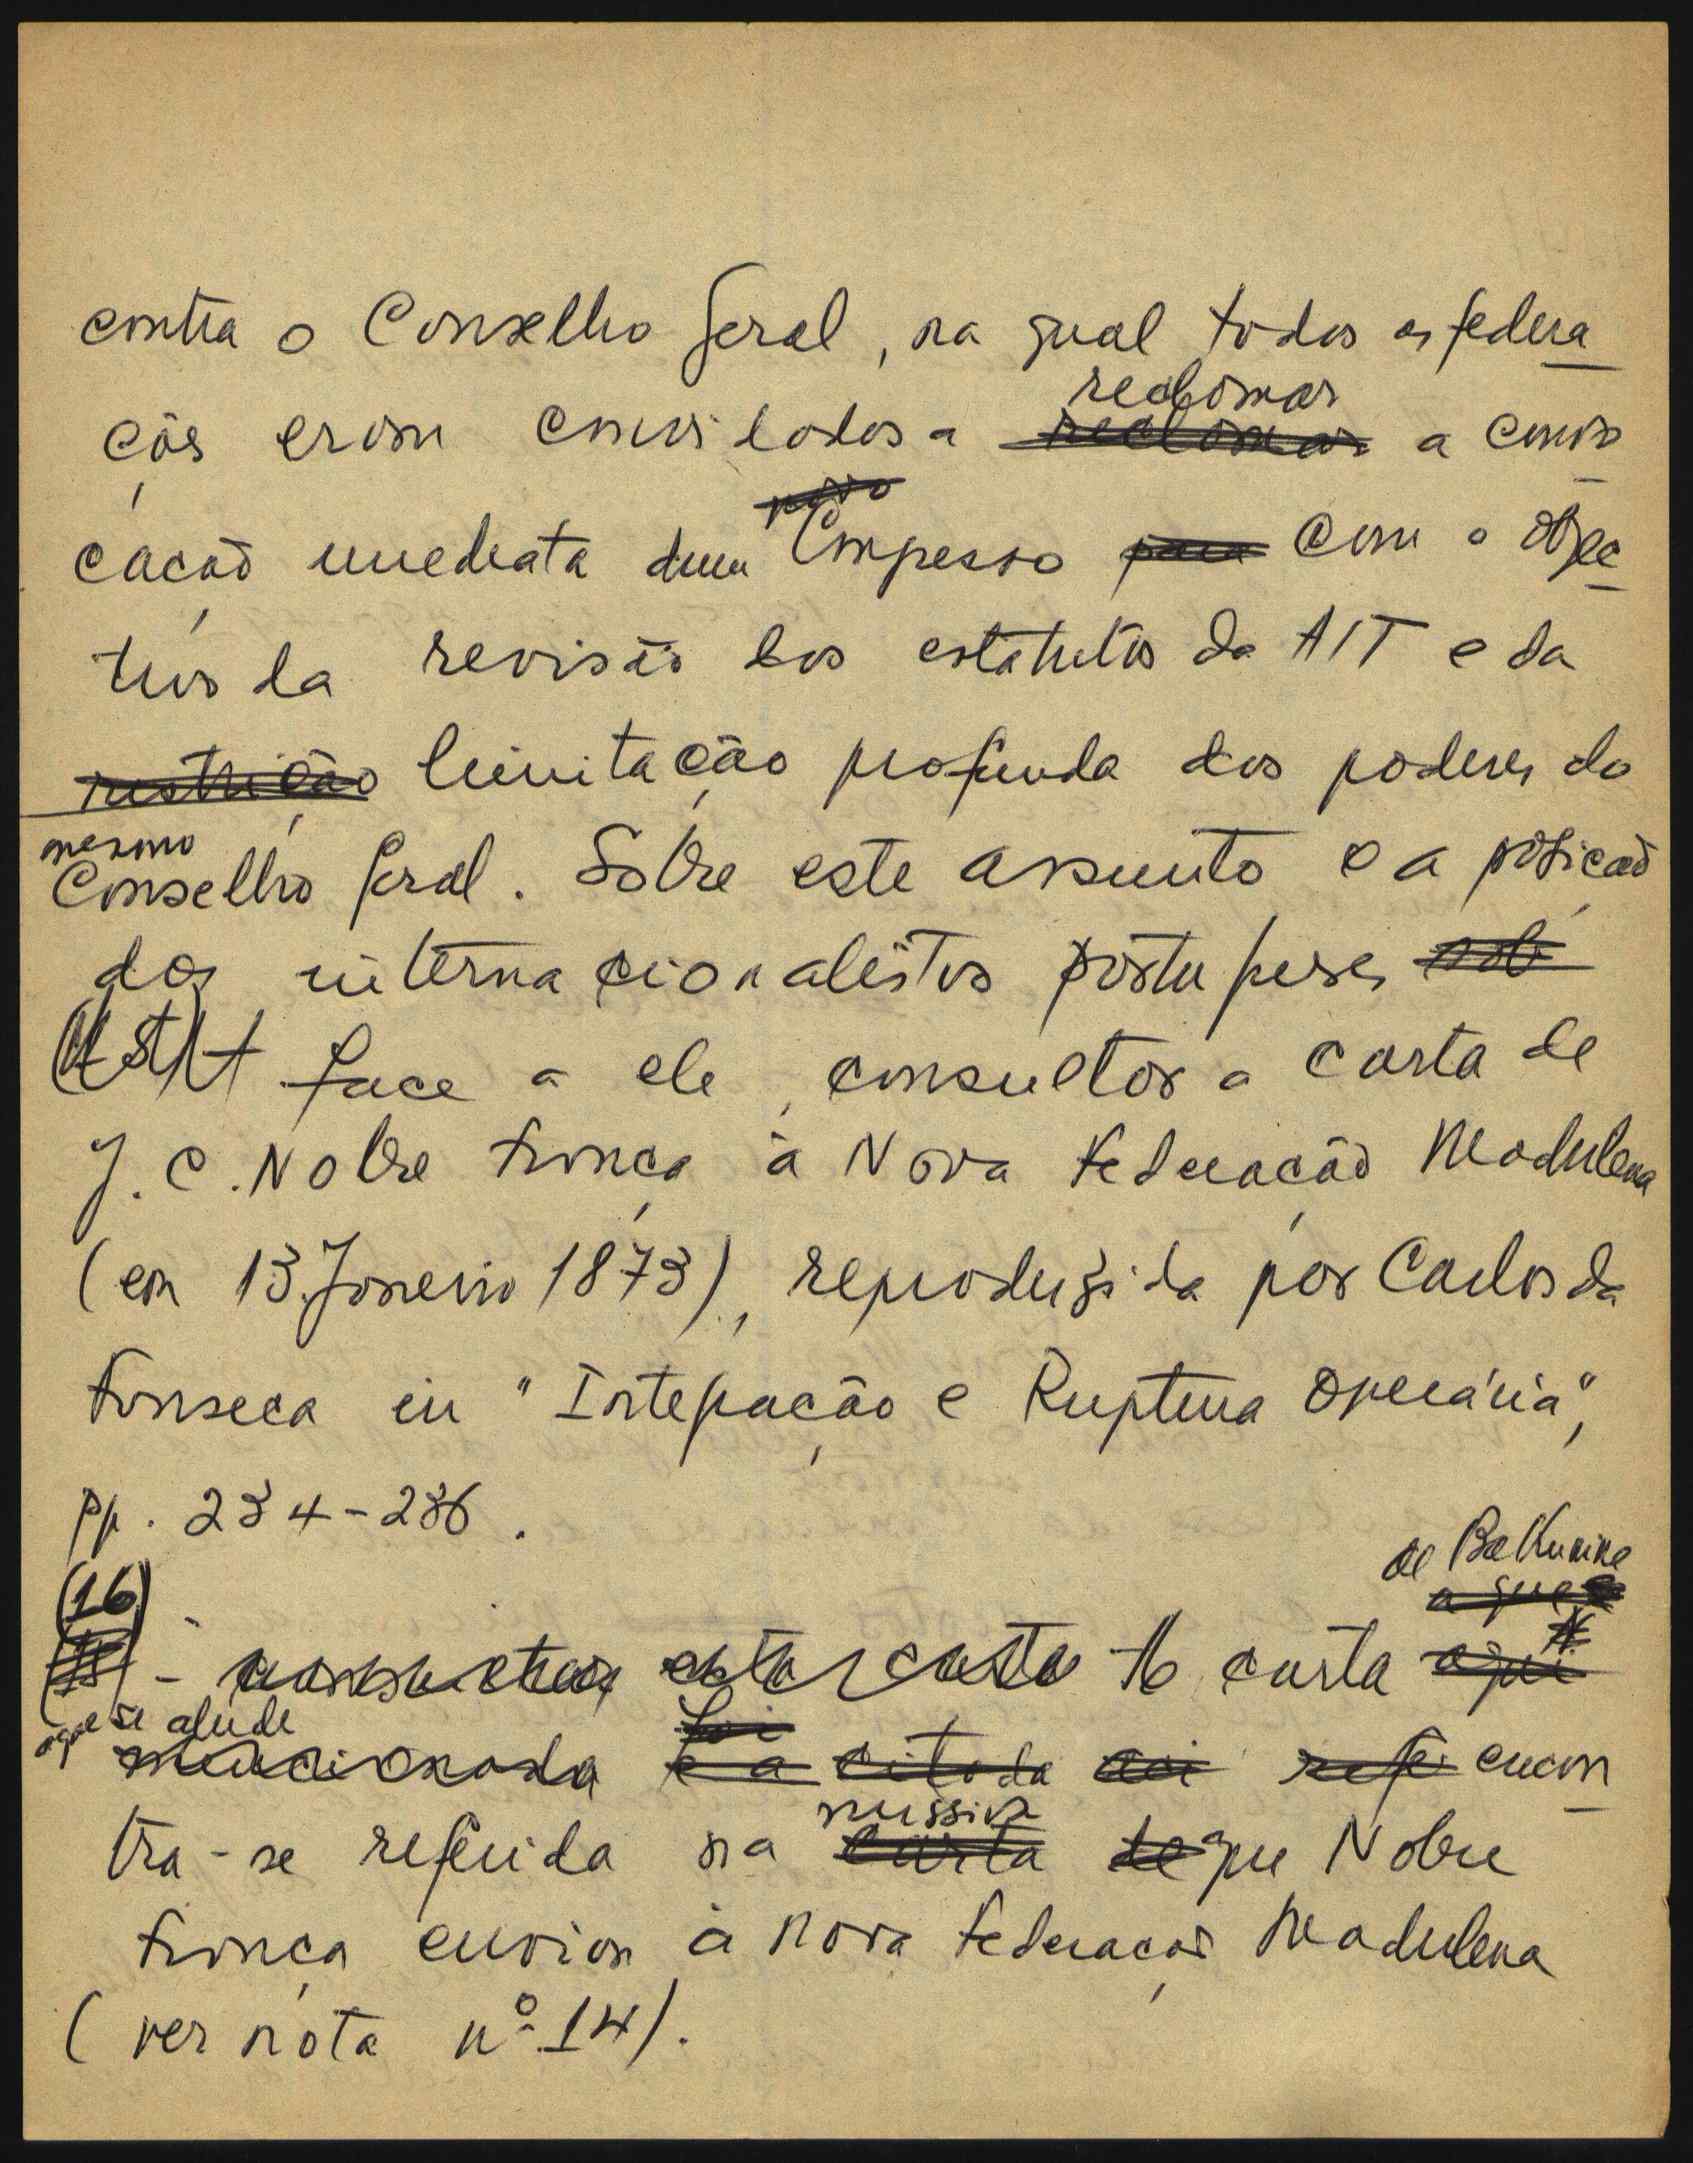 contra o Conselho Geral, na qual todos as federa
ções eram convidados a reclamar a convo
cação imediata dum Congresso com o objec
tivo da revisão dos estatutos da AIT e da
restrição limitação profunda dos poderes do
mesmo
Conselho Geral. Sobre este assunto e a posição
dos internacionalistas portugueses sob
face a ele, consultar a carta de
J. C. Nobre França à Nova Federação Madrilena
(em 13.Janeiro 1873), reproduzida por Carlos da
Fonseca in "Integração e Ruptura Operária",
pp. 234-236.
de Bakunine
a que se
(16) - consultar esta carta A carta aqui
a que se alude
foi
mencionada é a citada refe encon
missiva
tra-se referida na carta de que Nobre
França enviou à Nova Federação Madrilena
(ver nota nº 14).